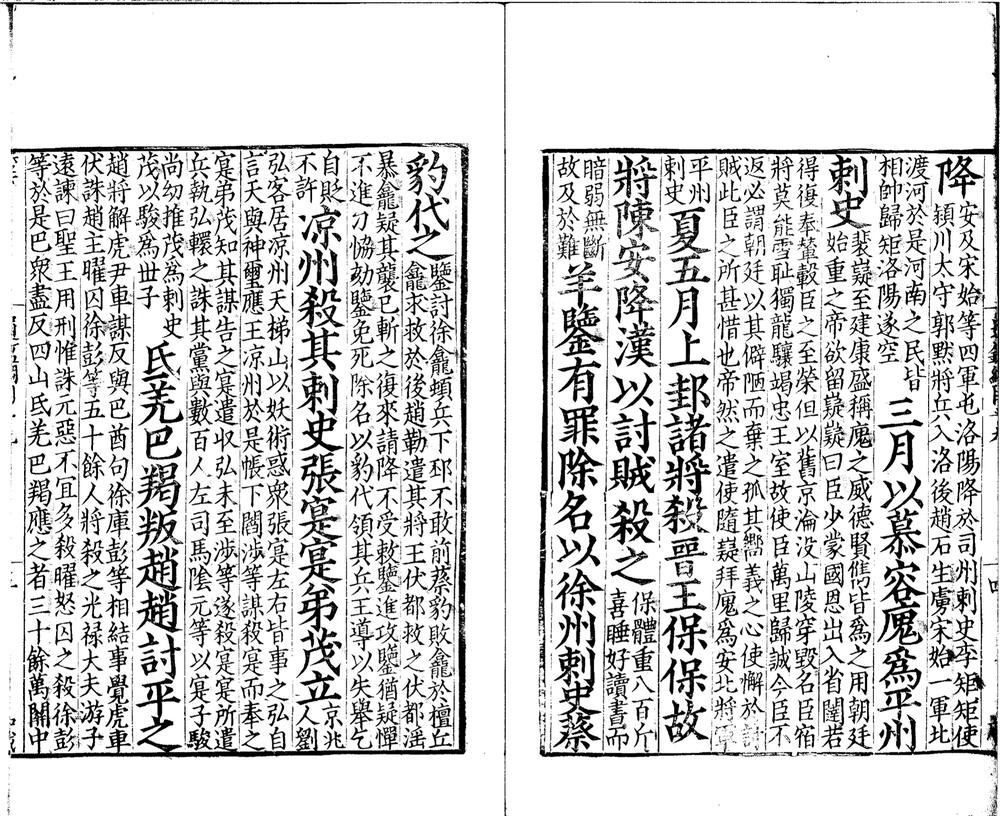 降
安及宋始等四軍屯洛陽降於司州刺史李矩矩使
潁川太守郭默將兵入洛後趙石生虜宋始一軍北
渡河於是河南之民皆
相帥歸矩洛陽遂空
三月以慕容廆爲平州
刺史
裴嶷至建康盛稱廆之威德賢儁皆爲之用朝廷
始重之帝欲留嶷嶷曰臣少蒙國恩出入省闥若
得復奉輦轂臣之至榮但以舊京淪沒山陵穿毀名臣宿
將莫能雪恥獨龍驤竭忠王室故使臣萬里歸誠今臣不
返必謂朝廷以其僻陋而棄之孤其嚮義之心使懈於討
賊此臣之所甚惜也帝然之遣使隨嶷拜廆爲安北將軍
平州
刺史
夏五月上邽諸將殺晉王保保故
將陳安降漢以討賊殺之
保體重八百斤
喜睡好讀書而
暗弱無斷
故及於難
羊鑒有罪除名以徐州刺史蔡
豹代之
鑒討徐龕頓兵下邳不敢前蔡豹敗龕於檀丘
龕求救於後趙勒遣其將王伏都救之伏都淫
暴龕疑其襲己斬之復來請降不受敕鑒進攻鑒猶疑憚
不進刁恊劾鑒免死除名以豹代領其兵王導以失舉乞
自貶
不許
涼州殺其刺史張寔寔弟茂立
京兆
人劉
弘客居涼州天梯山以妖術惑衆張寔左右皆事之弘自
言天與神璽應王涼州於是帳下閻涉等謀殺寔而奉之
寔弟茂知其謀告之寔遣収弘未至涉等遂殺寔寔所遣
兵執弘轘之誅其黨與數百人左司馬陰元等以寔子駿
尚幼推茂爲刺史
茂以駿爲世子
氐羌巴羯叛趙趙討平之
趙將解虎尹車謀反與巴酋句徐庫彭等相結事覺虎車
伏誅趙王曜囚徐彭等五十餘人將殺之光禄大夫游子
遠諫曰聖王用刑惟誅元惡不宜多殺曜怒囚之殺徐彭
等於是巴衆盡反四山氐羌巴羯應之者三十餘萬關中